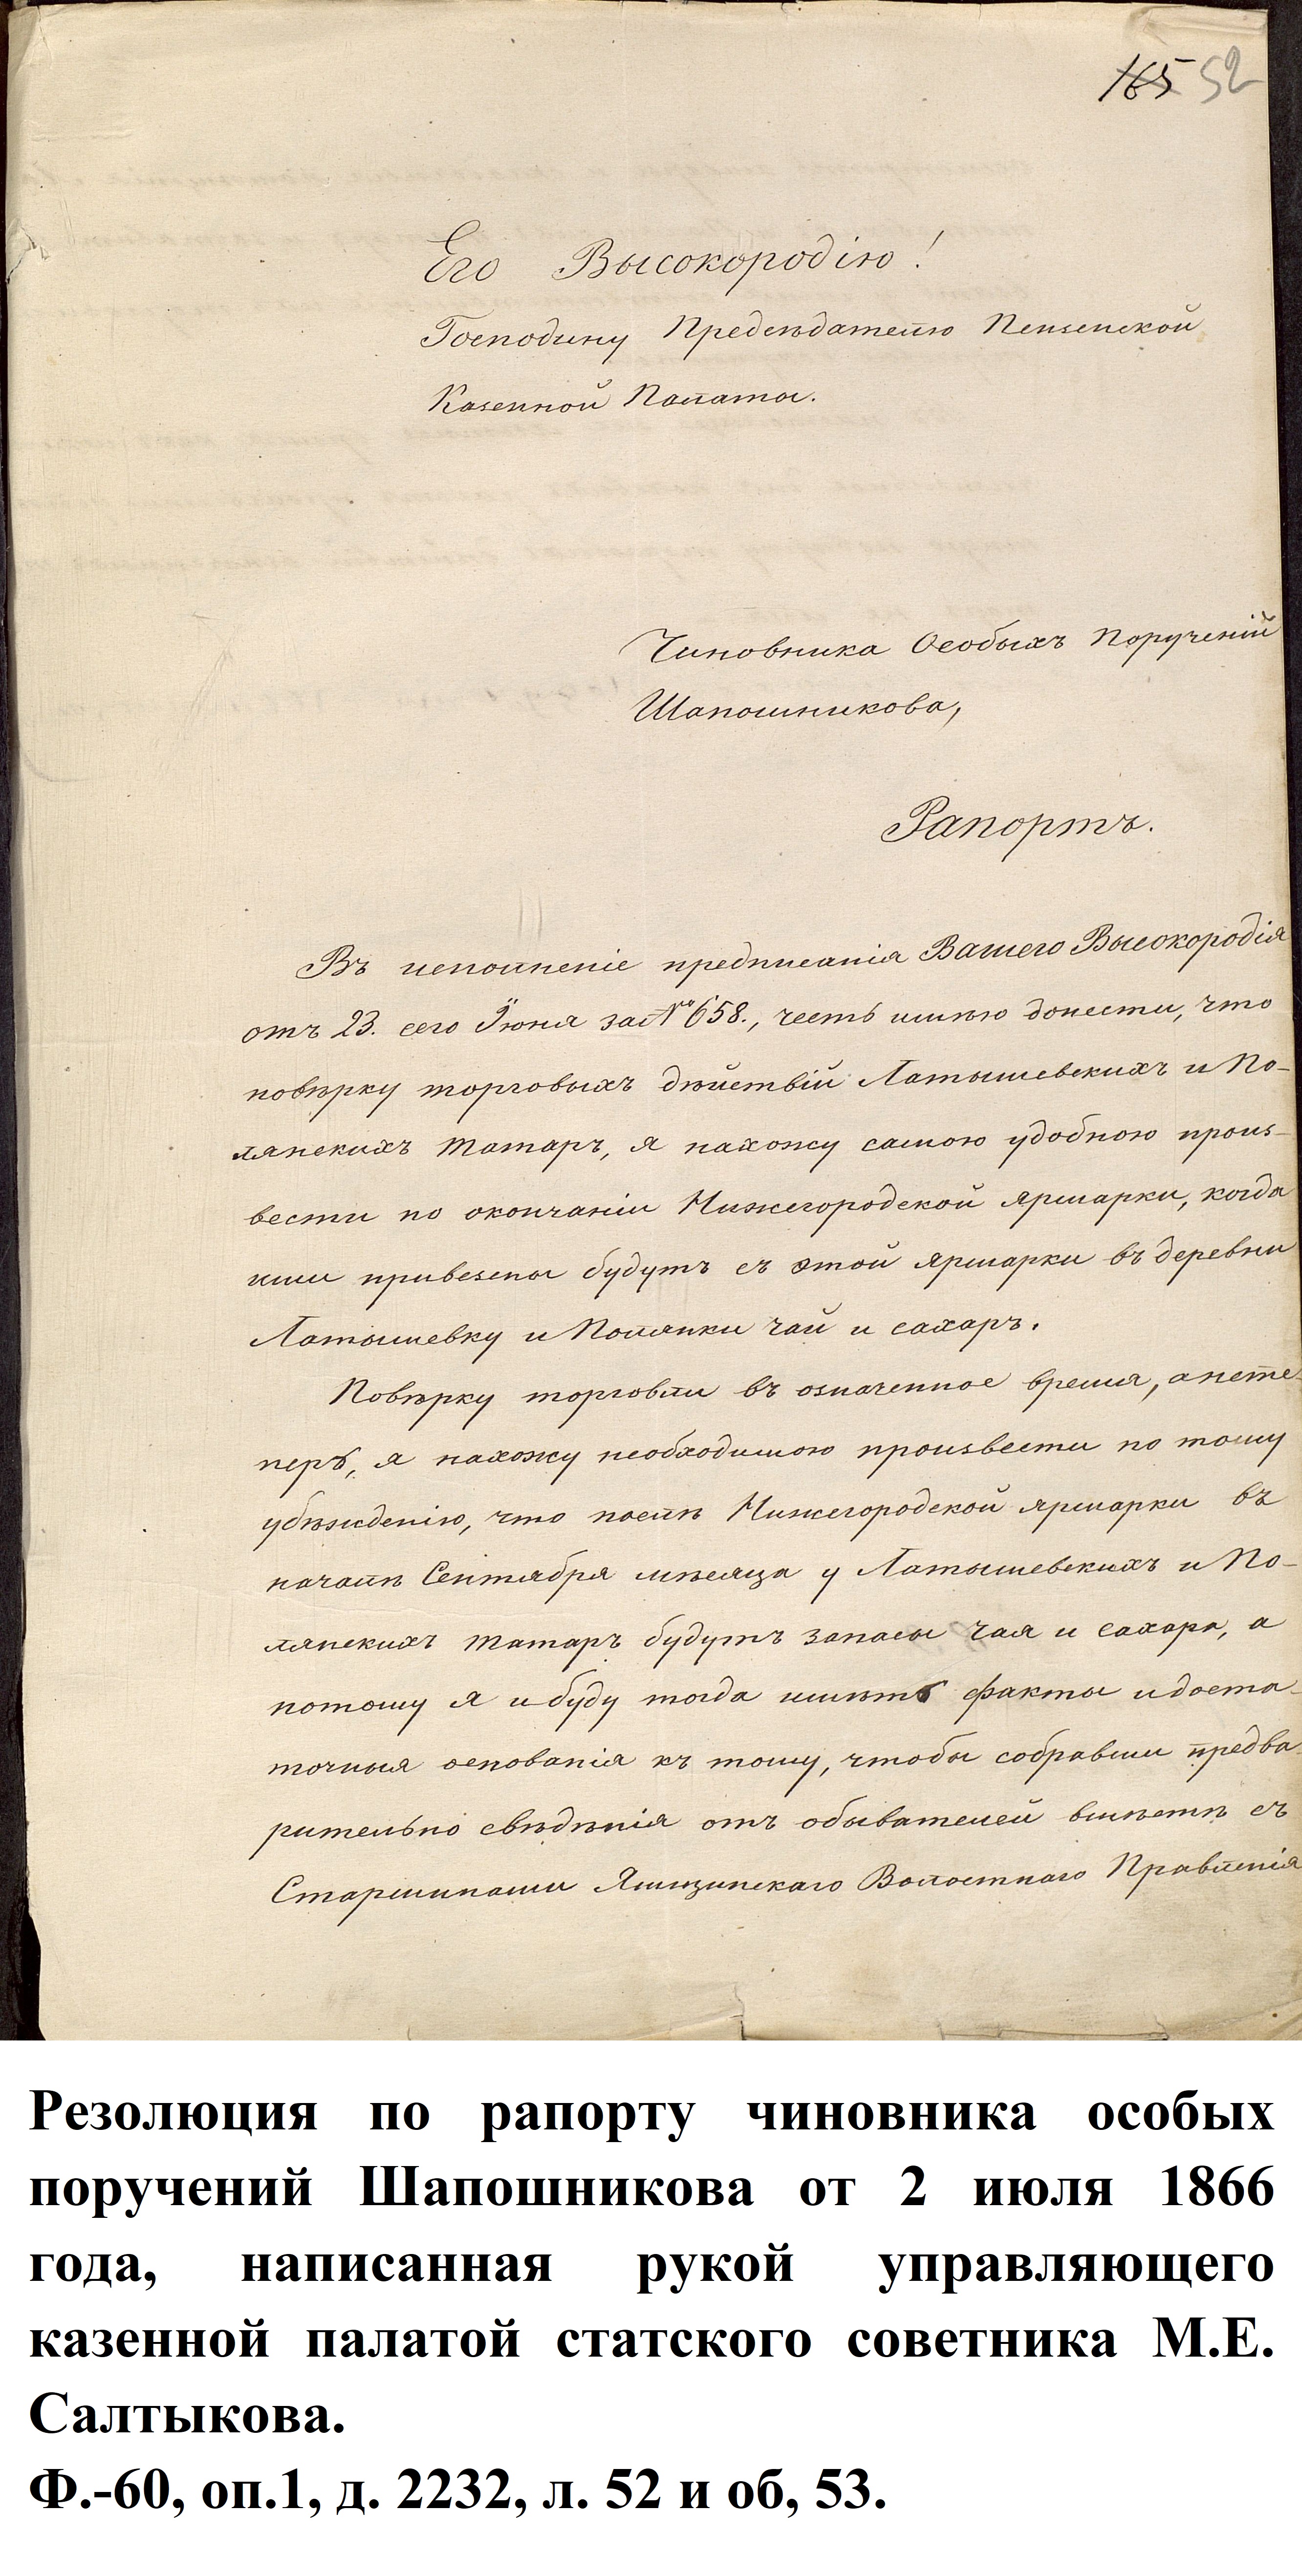 165 52
Его Высокородію!
Господину Предсѣдателю Пензенской
Казенной Палаты.
Чиновника Особыхъ Порученій
Шапошникова,
Рапортъ.
Въ исполненіе предписанія Вашего Высокородія
отъ 23. сего Іюня за № 658., честь имѣю донести, что
повѣрку торговыхъ дѣйствій Латышевскихъ и По-
лянскихъ татаръ, я нахожу самою удобною произ-
вести по окончаніи Нижегородской ярмарки, когда
ими привезены будутъ съ этой ярмарки въ деревни
Латышевку и Полянки чай и сахаръ.
Повѣрку торговли въ означенное время, а не те-
перь, я нахожу необходимою произвести по тому
убѣжденію, что послѣ Нижегородской ярмарки въ
началѣ Сентября мѣсяца у Латышевскихъ и По-
лянскихъ татаръ будутъ запасы чая и сахара, а
потому я и буду тогда имѣть факты и доста-
точныя основанія къ тому, чтобы собравши предва-
рительно свѣдѣнія отъ обывателей вмѣстѣ съ
Старшинами Яшзинскаго Волостнаго Правленія
Резолюция по рапорту чиновника особых
поручений Шапошникова от 2 июля 1866
года, написанная рукой управляющего
казенной палатой статского советника М.Е.
Салтыкова.
Ф.-60, оп.1, д. 2232, л. 52 и об, 53.